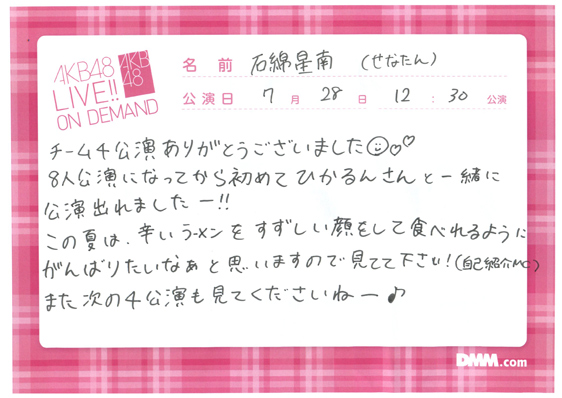 AKB48
LIVE!!
ON DEMAND
AKB
48
名 前 石綿星南 (せなたん)
公演日 7 月 28 日 12 : 30 公演
チーム4公演ありがとうございました
8人公演になってから初めてひかるんさんと一緒に
公演出れましたー!!
この夏は、辛いラーメンをすずしい顔をして食べれるように
がんばりたいなぁと思いますので見てて下さい!(自己紹介MC)
また次の4公演も見てくださいねー♪
DMM.com